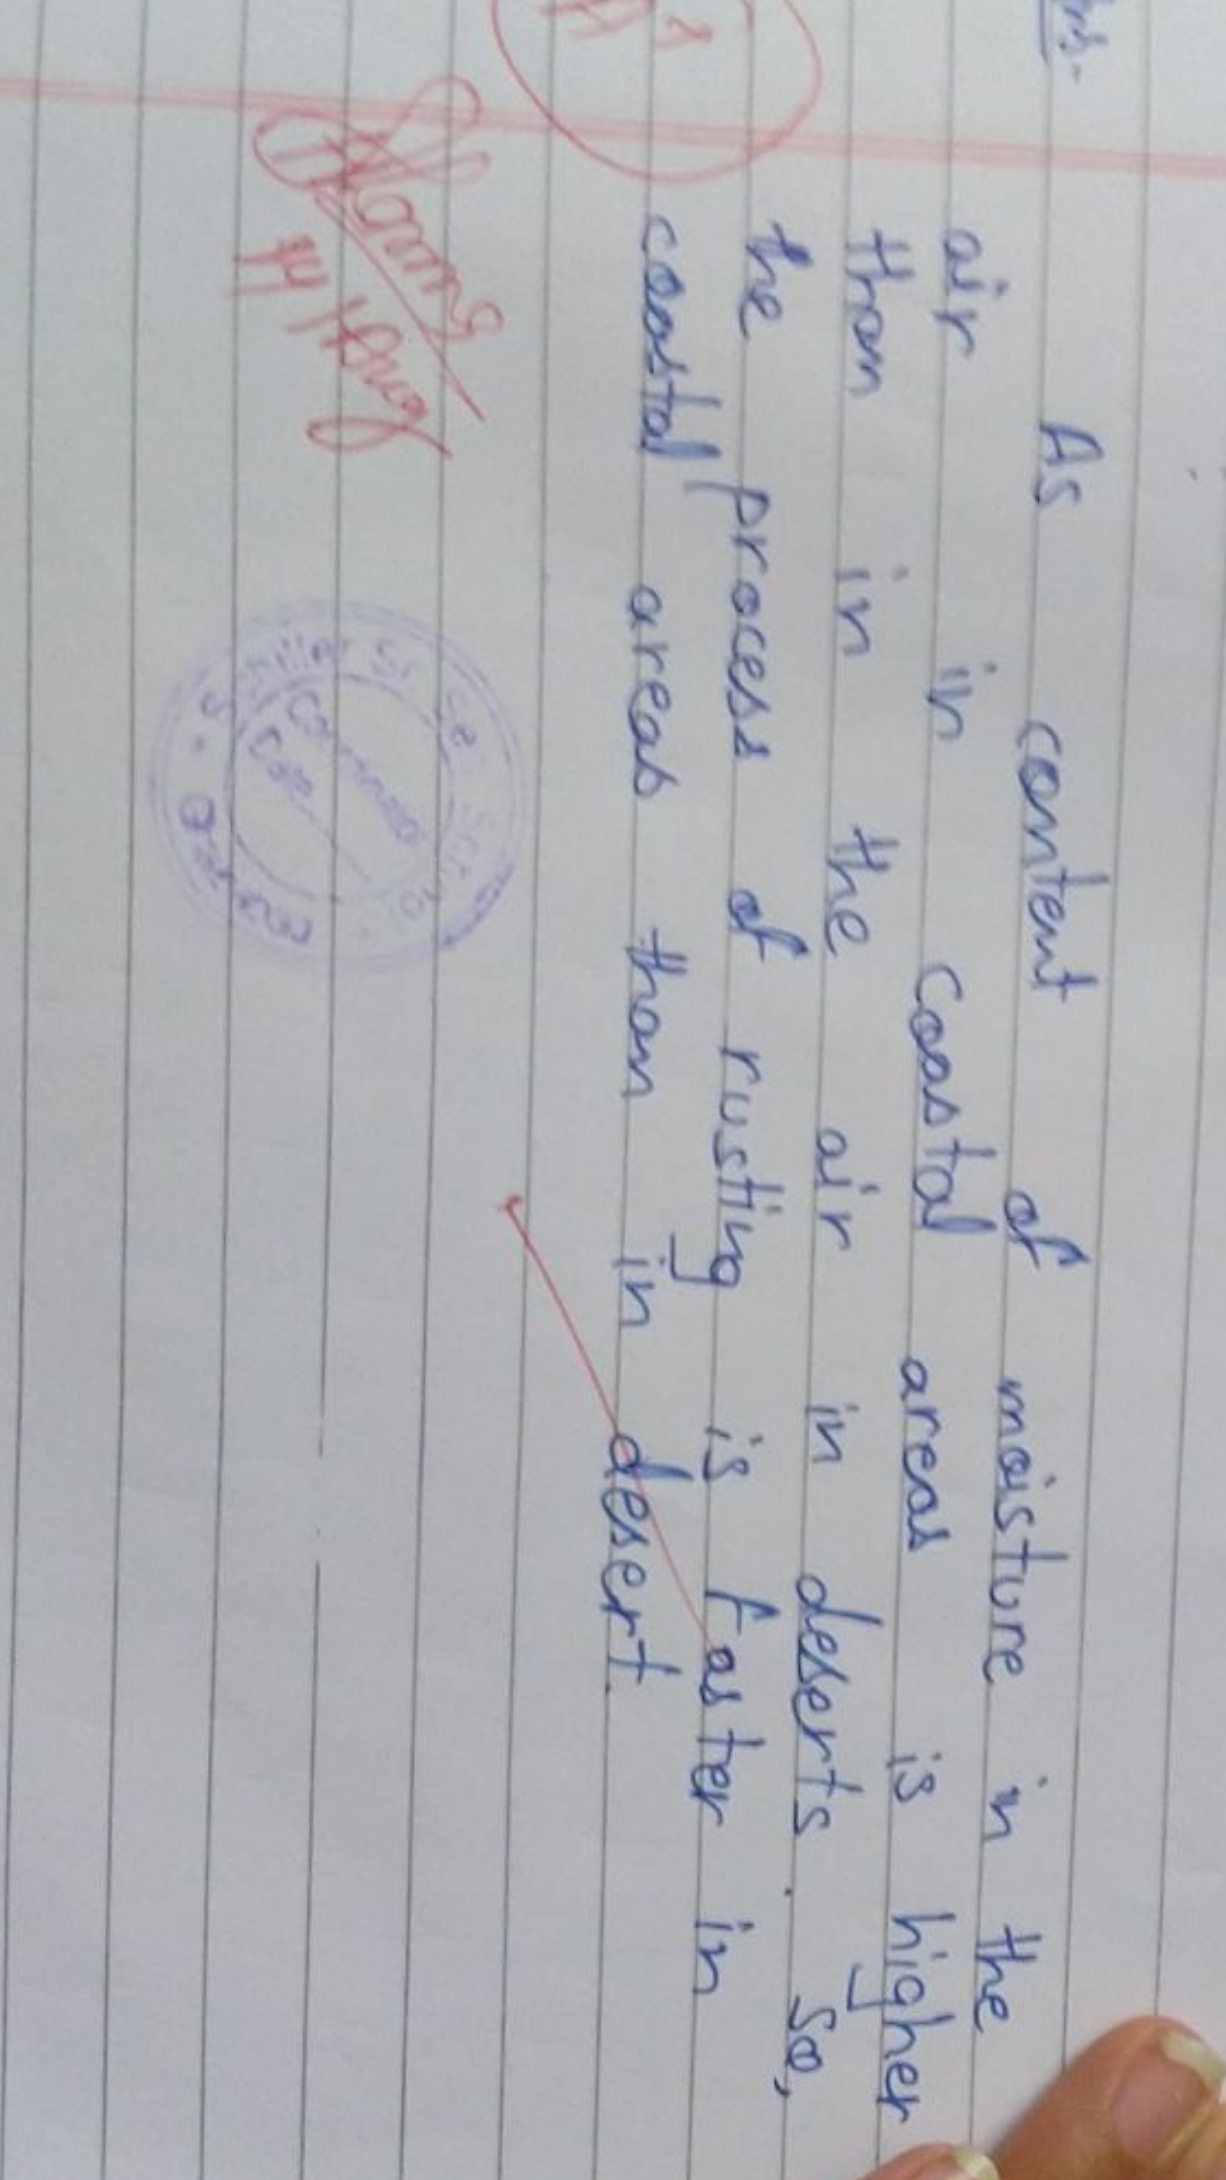 Ans-
As content of moisture in the
air in coastal areas is higher
than in the air in deserts. So,
the process of rusting is faster in
coastal areas than in desert.